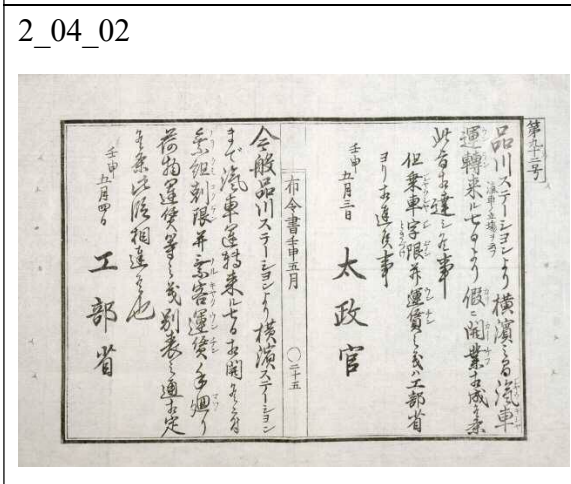 2_04_02
第九十三号
品川ステーションより横濱迄の汽車
運轉来ル七日より假ニ開業相成候条
此旨相達シ候事
但乗車字限并運賃之義ハ工部省
ヨリ相達候事
壬申五月三日 太政官
布令書 壬申五月 〇二十五
今般品川ステーションより横濱ステーション
まで汽車運轉来ル七日相開候ニ付
乗組刻限并乗客運賃手廻り
荷物運賃等之義別表之通相定
候条此段相達候也
壬申五月四日 工部省